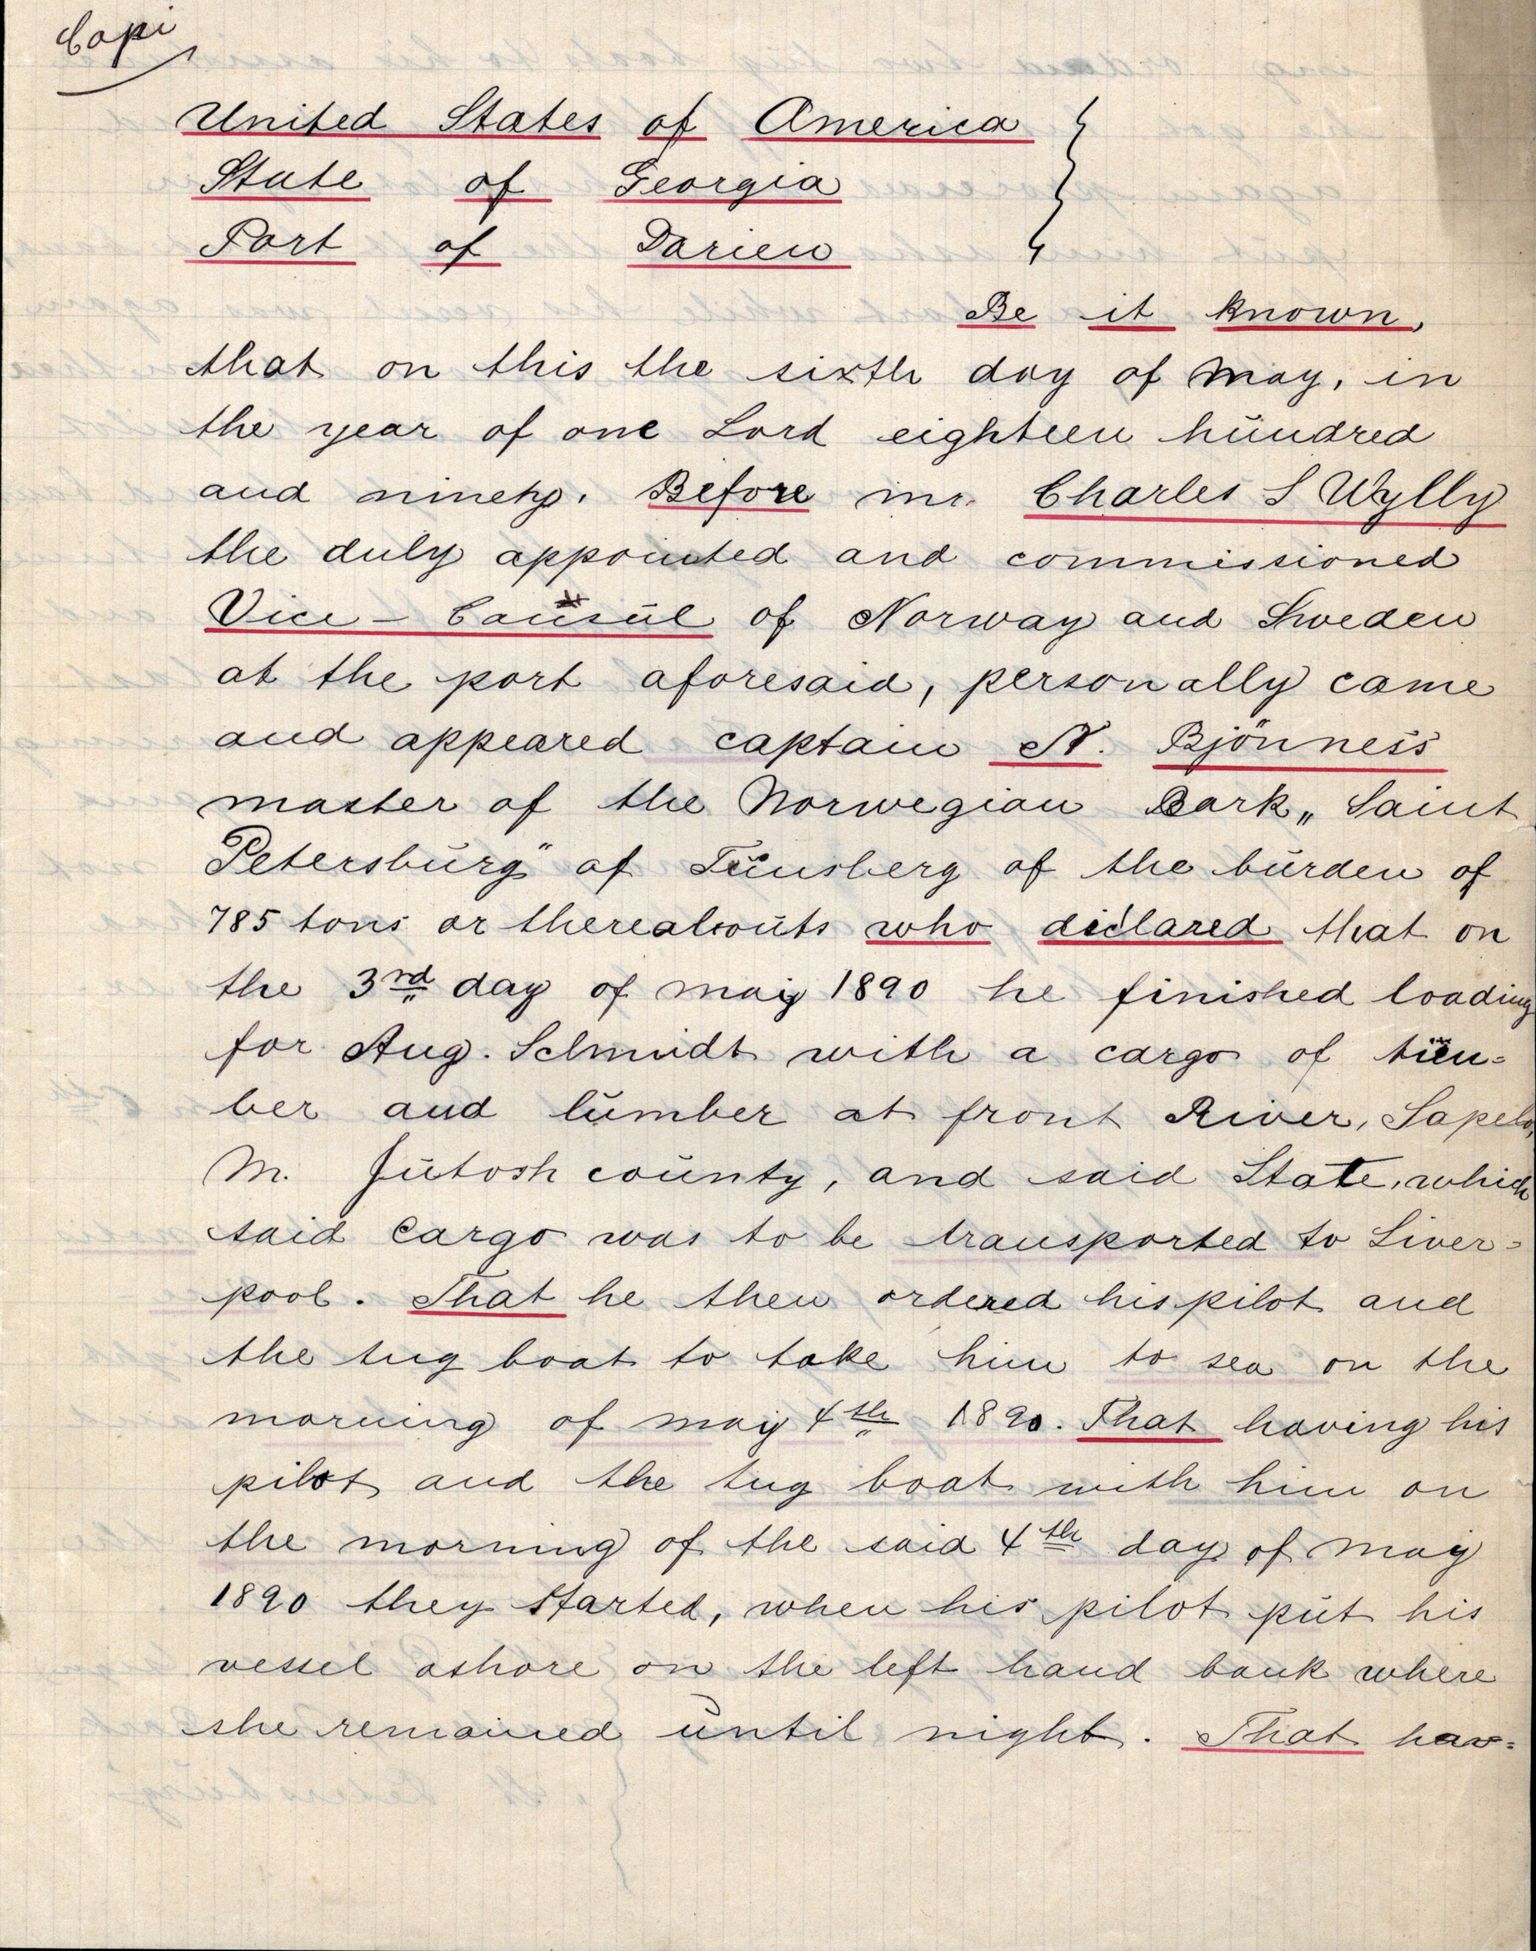 Copi
United States of America
State of Georgia
Port of Darien
Be it known,
that on this the sixth day of May, in
the year of one Lord eighteen hundred
and ninety. Before me. Charles S Wylly
the duly appointed and commissioned
Vice - Consul of Norway and Sweden
at the port aforesaid, personally came
and appeared captain N. Bjönness
master of the Norwegian Bark „Saint
Petersburg" of Tünsberg of the burden of
785 tons or thereabouts who declared that on
the 3rd day of may 1890 he finished loading
for Aug. Schmidt with a cargo of tim=
ber and lumber at front River, Sapelo,
M. Jutosh county, and said State, which
said cargo was to be transported to Liver=
pool. That he then ordered his pilot and
the tug boat to take him to sea on the
morning of may 4th 1890. That having his
pilot and the tug boat with him on
the morning of the said 4th day of may
1890 they started, when his pilot put his
vessel ashore on the left hand bank where
she remained until night. That hav=